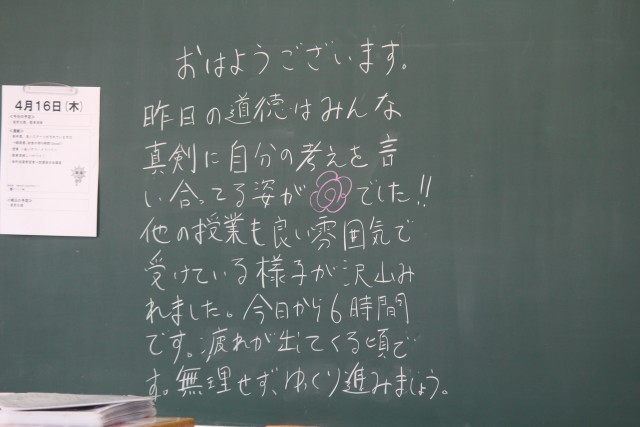 おはようございます。
昨日の道徳はみんな
真剣に自分の考えを言
い合ってる姿がでした!!
他の授業も良い雰囲気で
受けている様子が沢山み
れました。今日から6時間
です。疲れが出てくる頃で
す。無理せず、ゆっくり進みましょう。
4月16日(木)